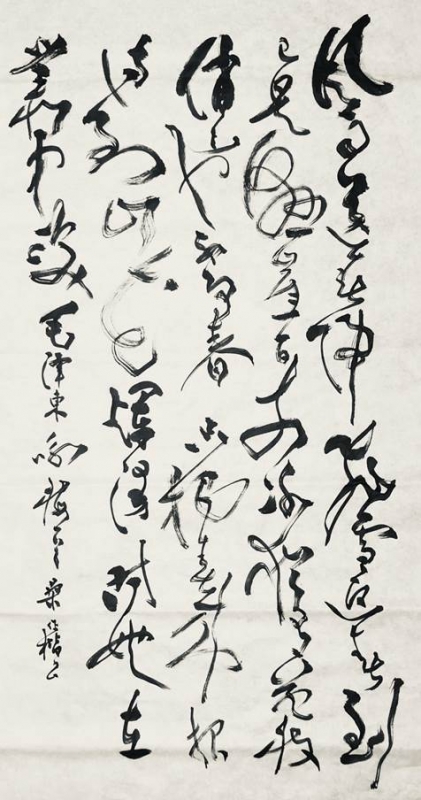 风雨送春归飞雪迎春到
已是悬崖百丈冰犹有花枝
俏俏也不争春只把春来报
待到山花烂漫时她在
丛中笑 毛泽东咏梅